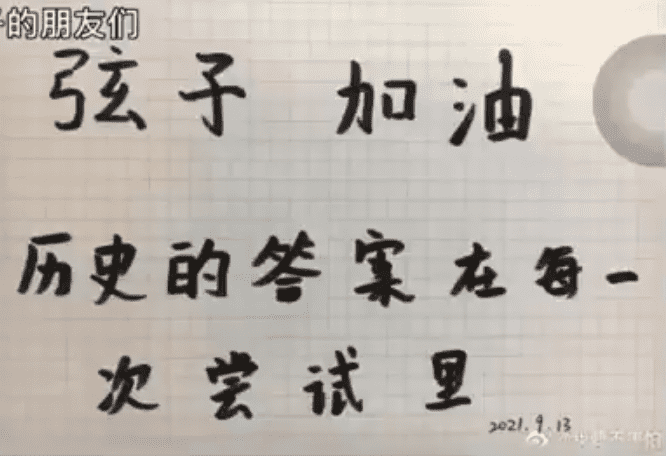 的朋友们
弦子 加油
历史的答案在每一
次尝试里
2021.9.13